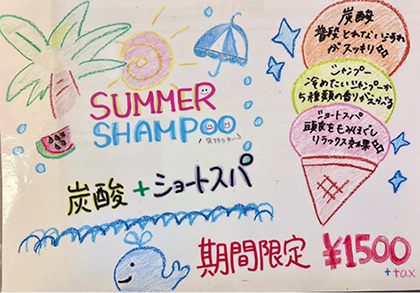 SUMMER
SHAMPOO
炭酸 + ショートスパ
期間限定 ¥1500
+tax
炭酸
普段とれない汚れ
がスッキリ
シャンプー
冷めたいシャンプーか
5種類の香りがえらべる
ショートスパ
頭皮をもみほぐし
リラックス効果